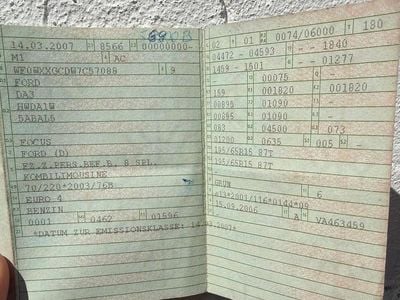 14.03.2007 8566 00000000-
M1 AC
WF0WXXGCDW7C57088 9
FORD
DA3
HWDA1W
5ABAL5
FOCUS
FORD (D)
FZ.Z.PERS.BEF.B. 8 SPL.
KOMBILIMOUSINE
70/220*2003/76B
EURO 4
BENZIN
0001 0462 01596
*DATUM ZUR EMISSIONSKLASSE: 14.03.2007*
02 01 0074/06000 180
04472 - 04593 - - 1840
1459 - 1501 - - 01277
00075 -
159 001820 001820
00895 01090 - -
00895 01090 - -
082 04500 073
01200 0635 005 -
195/65R15 87T
195/65R15 87T
GRUN 6
e13*2001/116*0144*09
15.09.2006 A VA463459